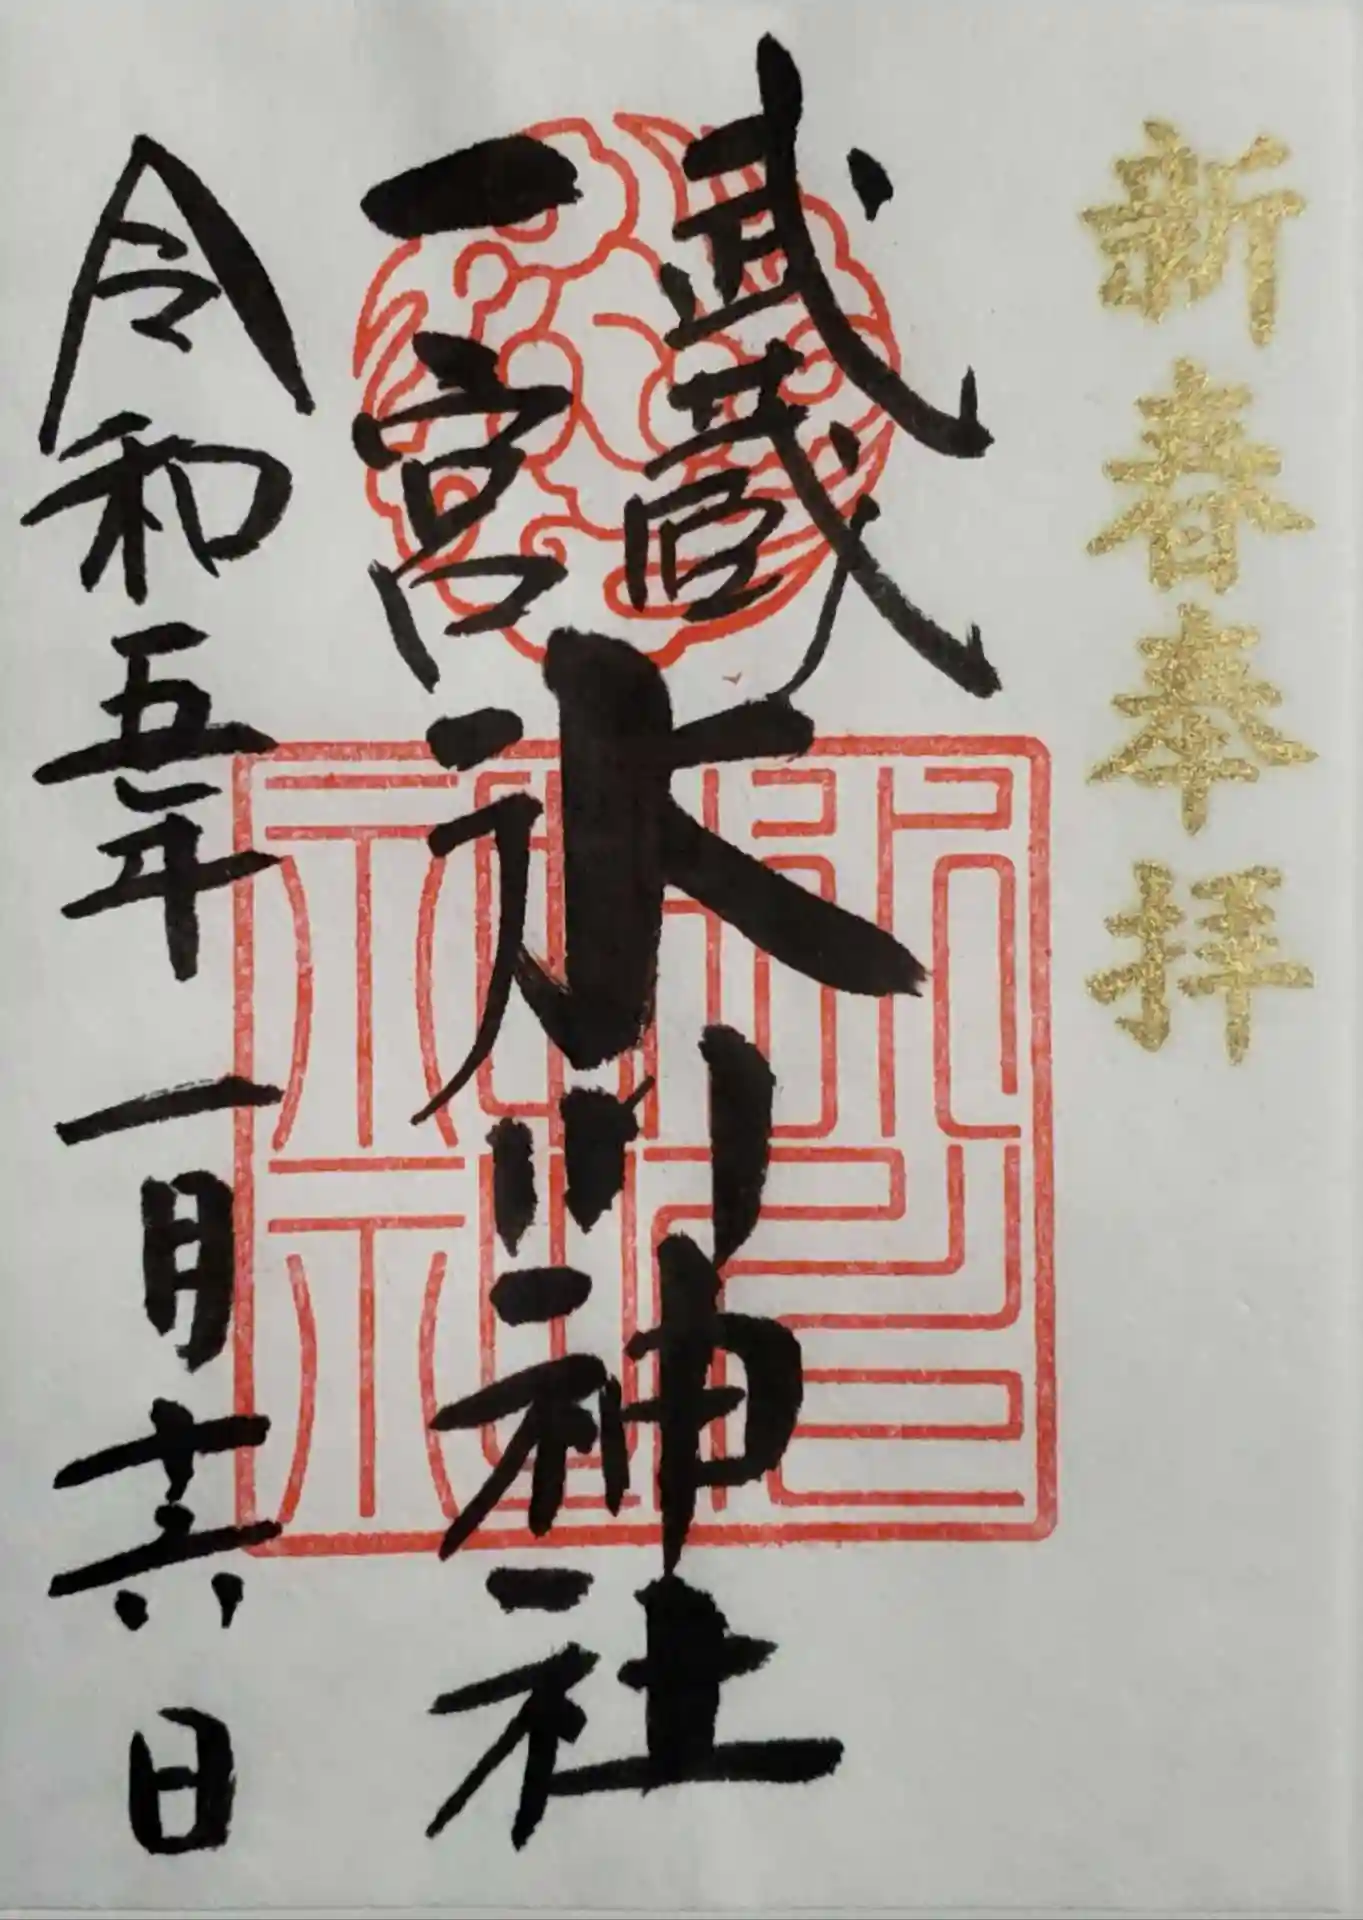 新春奉拝
武蔵
一宮
氷川神社
令和五年一月十六日